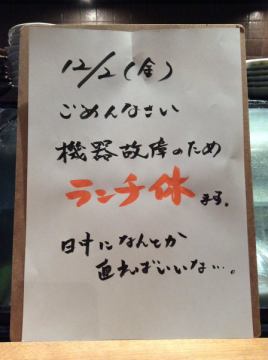 12/2(金)
ごめんなさい
機器故障のため
ランチ休ます。
日中になんとか
直ればいいな…。